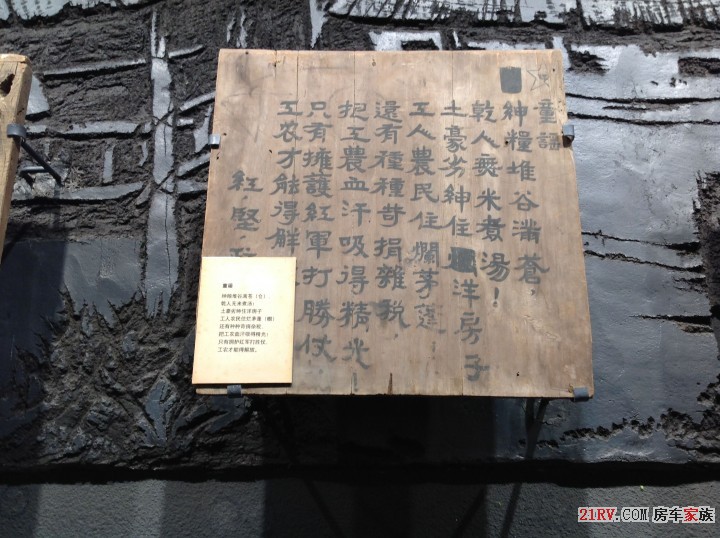 童謡
紳糧堆谷滿蒼，
乾人無米煮湯！
土豪劣紳住洋房子
工人農民住爛茅蓬！
還有種種苛捐雜稅
把工農血汗吸得精光！
只有擁護紅軍打勝仗
工农才能得解
紅堅
童谣
绅粮堆谷满苍（仓）
乾人无米煮汤！
土豪劣绅住洋房子
工人农民住烂茅蓬（棚）
还有种种苛捐杂税，
把工农血汗吸得精光！
只有拥护红军打胜仗，
工农才能得解放。
21RV.COM 房车家族